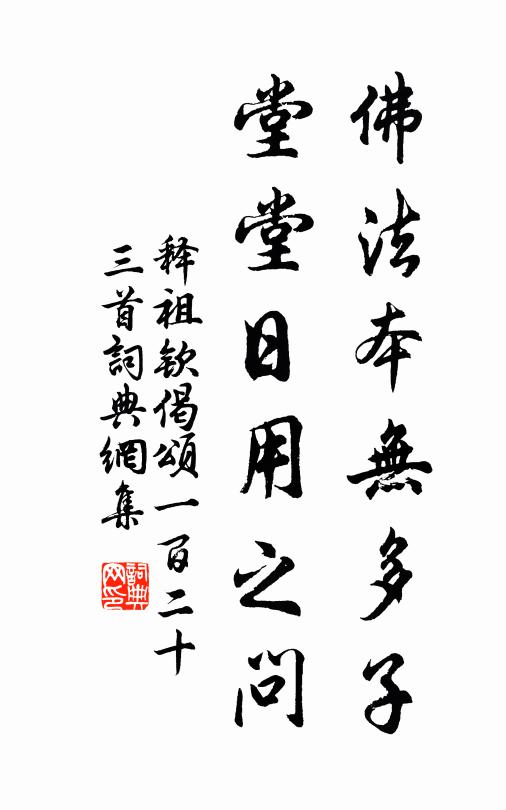 佛法本無多子
堂堂日用之問
释祖钦偈頌一百二十
三首詞典網集
詞典网印